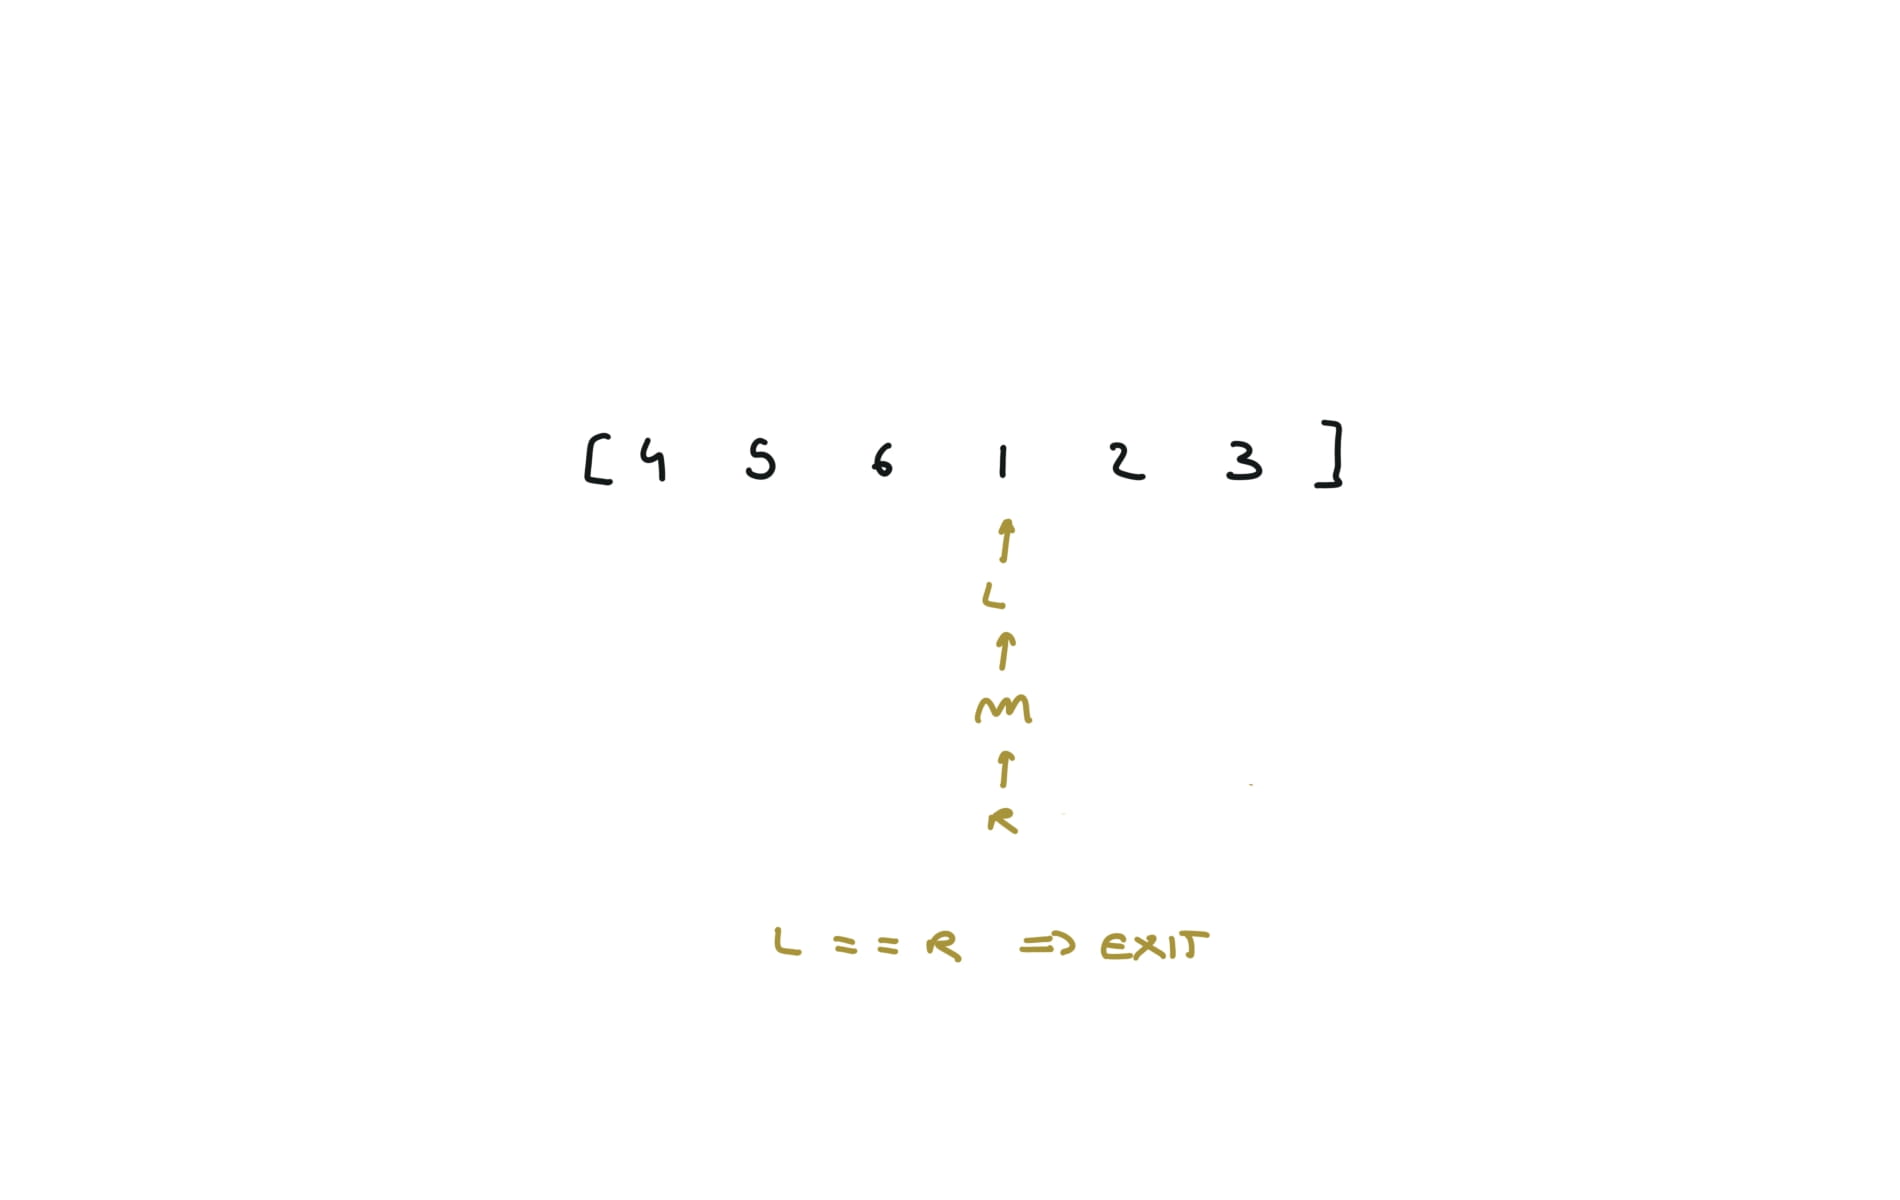 [ 4 5 6 1 2 3 ]
↑
L
↑
M
↑
R
L == R => EXIT